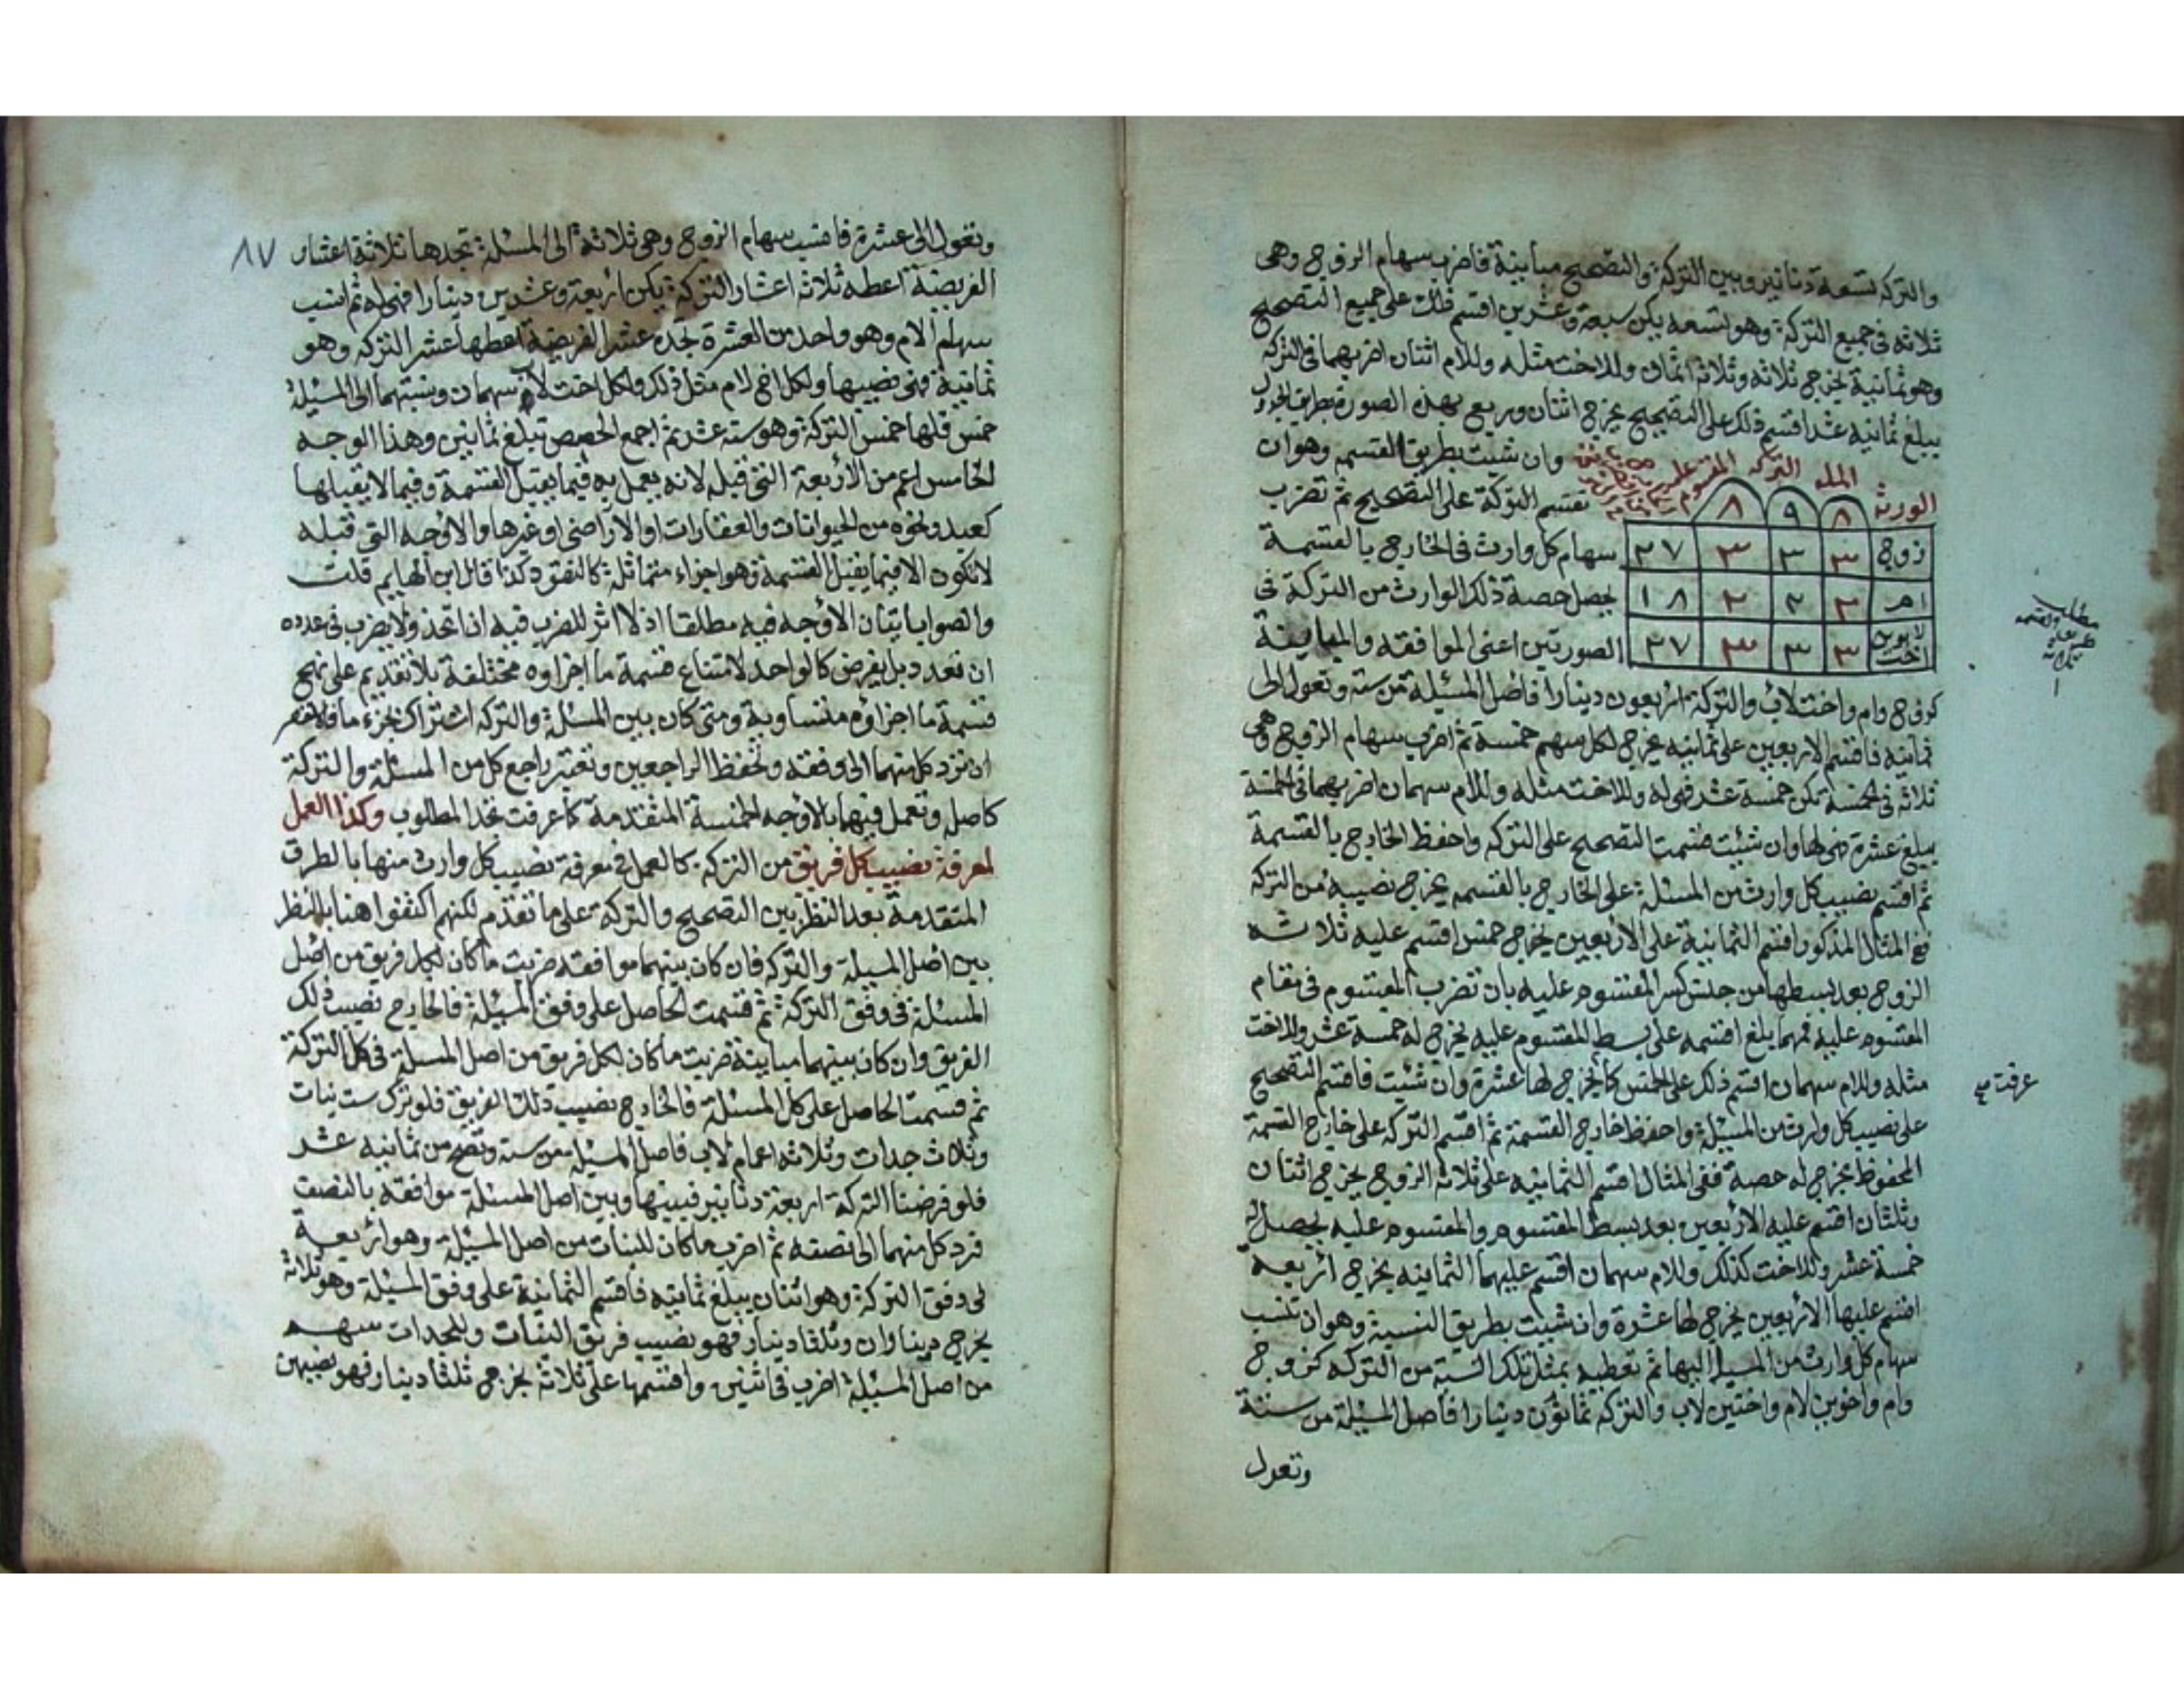 والتركة تسعة دنانير وبين التركة والتصحيح مباينة فاضرب سهام الزوج وهى
ثلاثه فى جميع التركة وهو تسعه يكن سبعة وعشرين اقسم ذلك على جميع التصحيح
وهو ثمانية يخرج ثلاثه وثلاثة اثمان وللاخت مثله وللام اثنان اضربهما فى التركة
يبلغ ثمانيه عشر اقسم ذلك على التصحيح يخرج اثنان وربع بهذه الصورة بطريق الجدول
وان شيت بطريق القسمه وهو ان
نقسم التركة على التصحيح ثم تضرب
سهام كل وارث فى الخارج بالقسمة
يحصل حصة ذلك الوارث من التركة فى
الصورتين اعنى الموافقه والمباينة
الورثة المسله التركه المقسوم عليه
٨ ٩ ٨
زوج ٣ ٣ ٣ ٢٧
ام ٢ ٢ ٢ ١٨
اخت لابوين ٣ ٣ ٣ ٢٧
كزوج وام واخت لاب والتركة اربعون دينارا فاصل المسئلة من ستة وتعول الى
ثمانيه فاقسم الاربعين على ثمانيه يخرج لكل سهم خمسة ثم اضرب سهام الزوج وهى
ثلاثه فى الخمسه تكن خمسة عشر فهى له وللاخت مثله وللام سهمان اضربهما فى الخمسة
يبلغ عشرة فهى لها وان شئت قسمت التصحيح على التركه واحفظ الخارج بالقسمة
ثم اقسم نصيب كل وارث من المسئلة على الخارج بالقسمه يخرج نصيبه من التركة
فى المثال المذكور اقسم الثمانية على الاربعين يخرج خمس اقسم عليه ثلاثه
الزوج بعد بسطها من جنس كسر المقسوم عليه بان تضرب المقسوم فى مقام
المقسوم عليه فمهما بلغ اقسمه على بسط المقسوم عليه يخرج له خمسة عشر وللاخت
مثله وللام سهمان اقسم ذلك على الخمس كما يخرج لها عشرة وان شئت فاقسم التصحيح
على نصيب كل وارث من المسئلة واحفظ خارج القسمة ثم اقسم التركه على خارج القسمة
المحفوظ يخرج له حصة ففى المثال اقسم الثمانيه على ثلاثة الزوج يخرج اثنان
وثلثان اقسم عليه الاربعين بعد بسط المقسوم والمقسوم عليه يحصل له
خمسة عشر وللاخت كذلك وللام سهمان اقسم عليهما الثمانيه يخرج اربعه
اقسم عليها الاربعين يخرج لها عشرة وان شيت بطريق النسبة وهو ان تنسب
سهام كل وارث من المسيلة اليها ثم تعطيه بمثل تلك النسبة من التركه كزوج
وام واخوين لام واختين لاب والتركه ثمانون دينارا فاصل المسيلة من ستة
وتعول
مطلب
عرفت
٨٧
وتعول الى عشرة فانسب سهام الزوج وهى ثلاثة الى المسئلة تجدها ثلاثة اعشار
الفريضة اعطه ثلاثة اعشار التركة يكن اربعة وعشرين دينارا فهى له ثم انسب
سهام الام وهو واحد من العشرة تجده عشر الفريضة اعطها عشر التركه وهو
ثمانية فهى نصيبها ولكل اخ لام مثل ذلك ولكل اخت لاب سهمان ونسبتهما الى المسئلة
خمس فلها خمس التركة وهو سته عشر ثم اجمع الحصص تبلغ ثمانين وهذا الوجه
الخامس اعم من الاربعة التى قبله لانه يعمل به فيما يقبل القسمة وفيما لا يقبلها
كعبد ونحوه من الحيوانات والعقارات او الاراضى او غيرها والاوجه التى قبله
لا تكون الا فيما يقبل القسمة وهو اجزاء متماثلة كالنقود كذا قال ابن الهايم قلت
والصواب اتيان الاوجه فيه مطلقا اذ لا اثر للضرب فيه ان اتحد ولا يضرب فى عدده
ان تعدد بل يفرض كالواحد لامتناع قسمة ما اجزاوه مختلفة بلا تقديم على نهج
قسمة ما اجزاؤه متساوية ومتى كان بين المسئلة والتركه اشتراك بجزء ما فالاخصر
ان ترد كل منهما الى وفقه وتحفظ الراجعين وتعتبر راجع كل من المسئلة والتركة
كاصله وتعمل فيهما بالاوجه الخمسة المتقدمة كما عرفت تجد المطلوب وكذا العمل
لمعرفة نصيب كل فريق من التركة كالعمل فى معرفة نصيب كل وارث منها بالطرق
المتقدمة بعد النظر بين التصحيح والتركة على ما تقدم لكنهم اكتفوا هنا بالنظر
بين اصل المسيلة والتركه فان كان بينهما موافقه ضربت ما كان لكل فريق من اصل
المسئلة فى وفق التركة ثم قسمت الحاصل على وفق المسيلة فالخارج نصيب ذلك
الفريق وان كان بينهما مباينة ضربت ما كان لكل فريق من اصل المسلة فى كل التركة
ثم قسمت الحاصل على كل المسئلة فالخارج نصيب ذلك الفريق فلو ترك ست بنات
وثلاث جدات وثلاثه اعمام لاب فاصل المسيلة من ستة وتصح من ثمانيه عشر
فلو فرضنا التركة اربعة دنانير فبينها وبين اصل المسئلة موافقة بالنصف
فرد كل منهما الى نصفه ثم اضرب ما كان للبنات من اصل المسيلة وهو اربعة
فى وفق التركة وهو اثنان يبلغ ثمانيه فاقسم الثمانية على وفق المسيلة وهو ثلاثة
يخرج ديناران وثلثا دينار فهو نصيب فريق البنات وللجدات سهم
من اصل المسيلة اضرب فى اثنين واقسمها على ثلاثة يخرج ثلثا دينار فهو نصيبهن